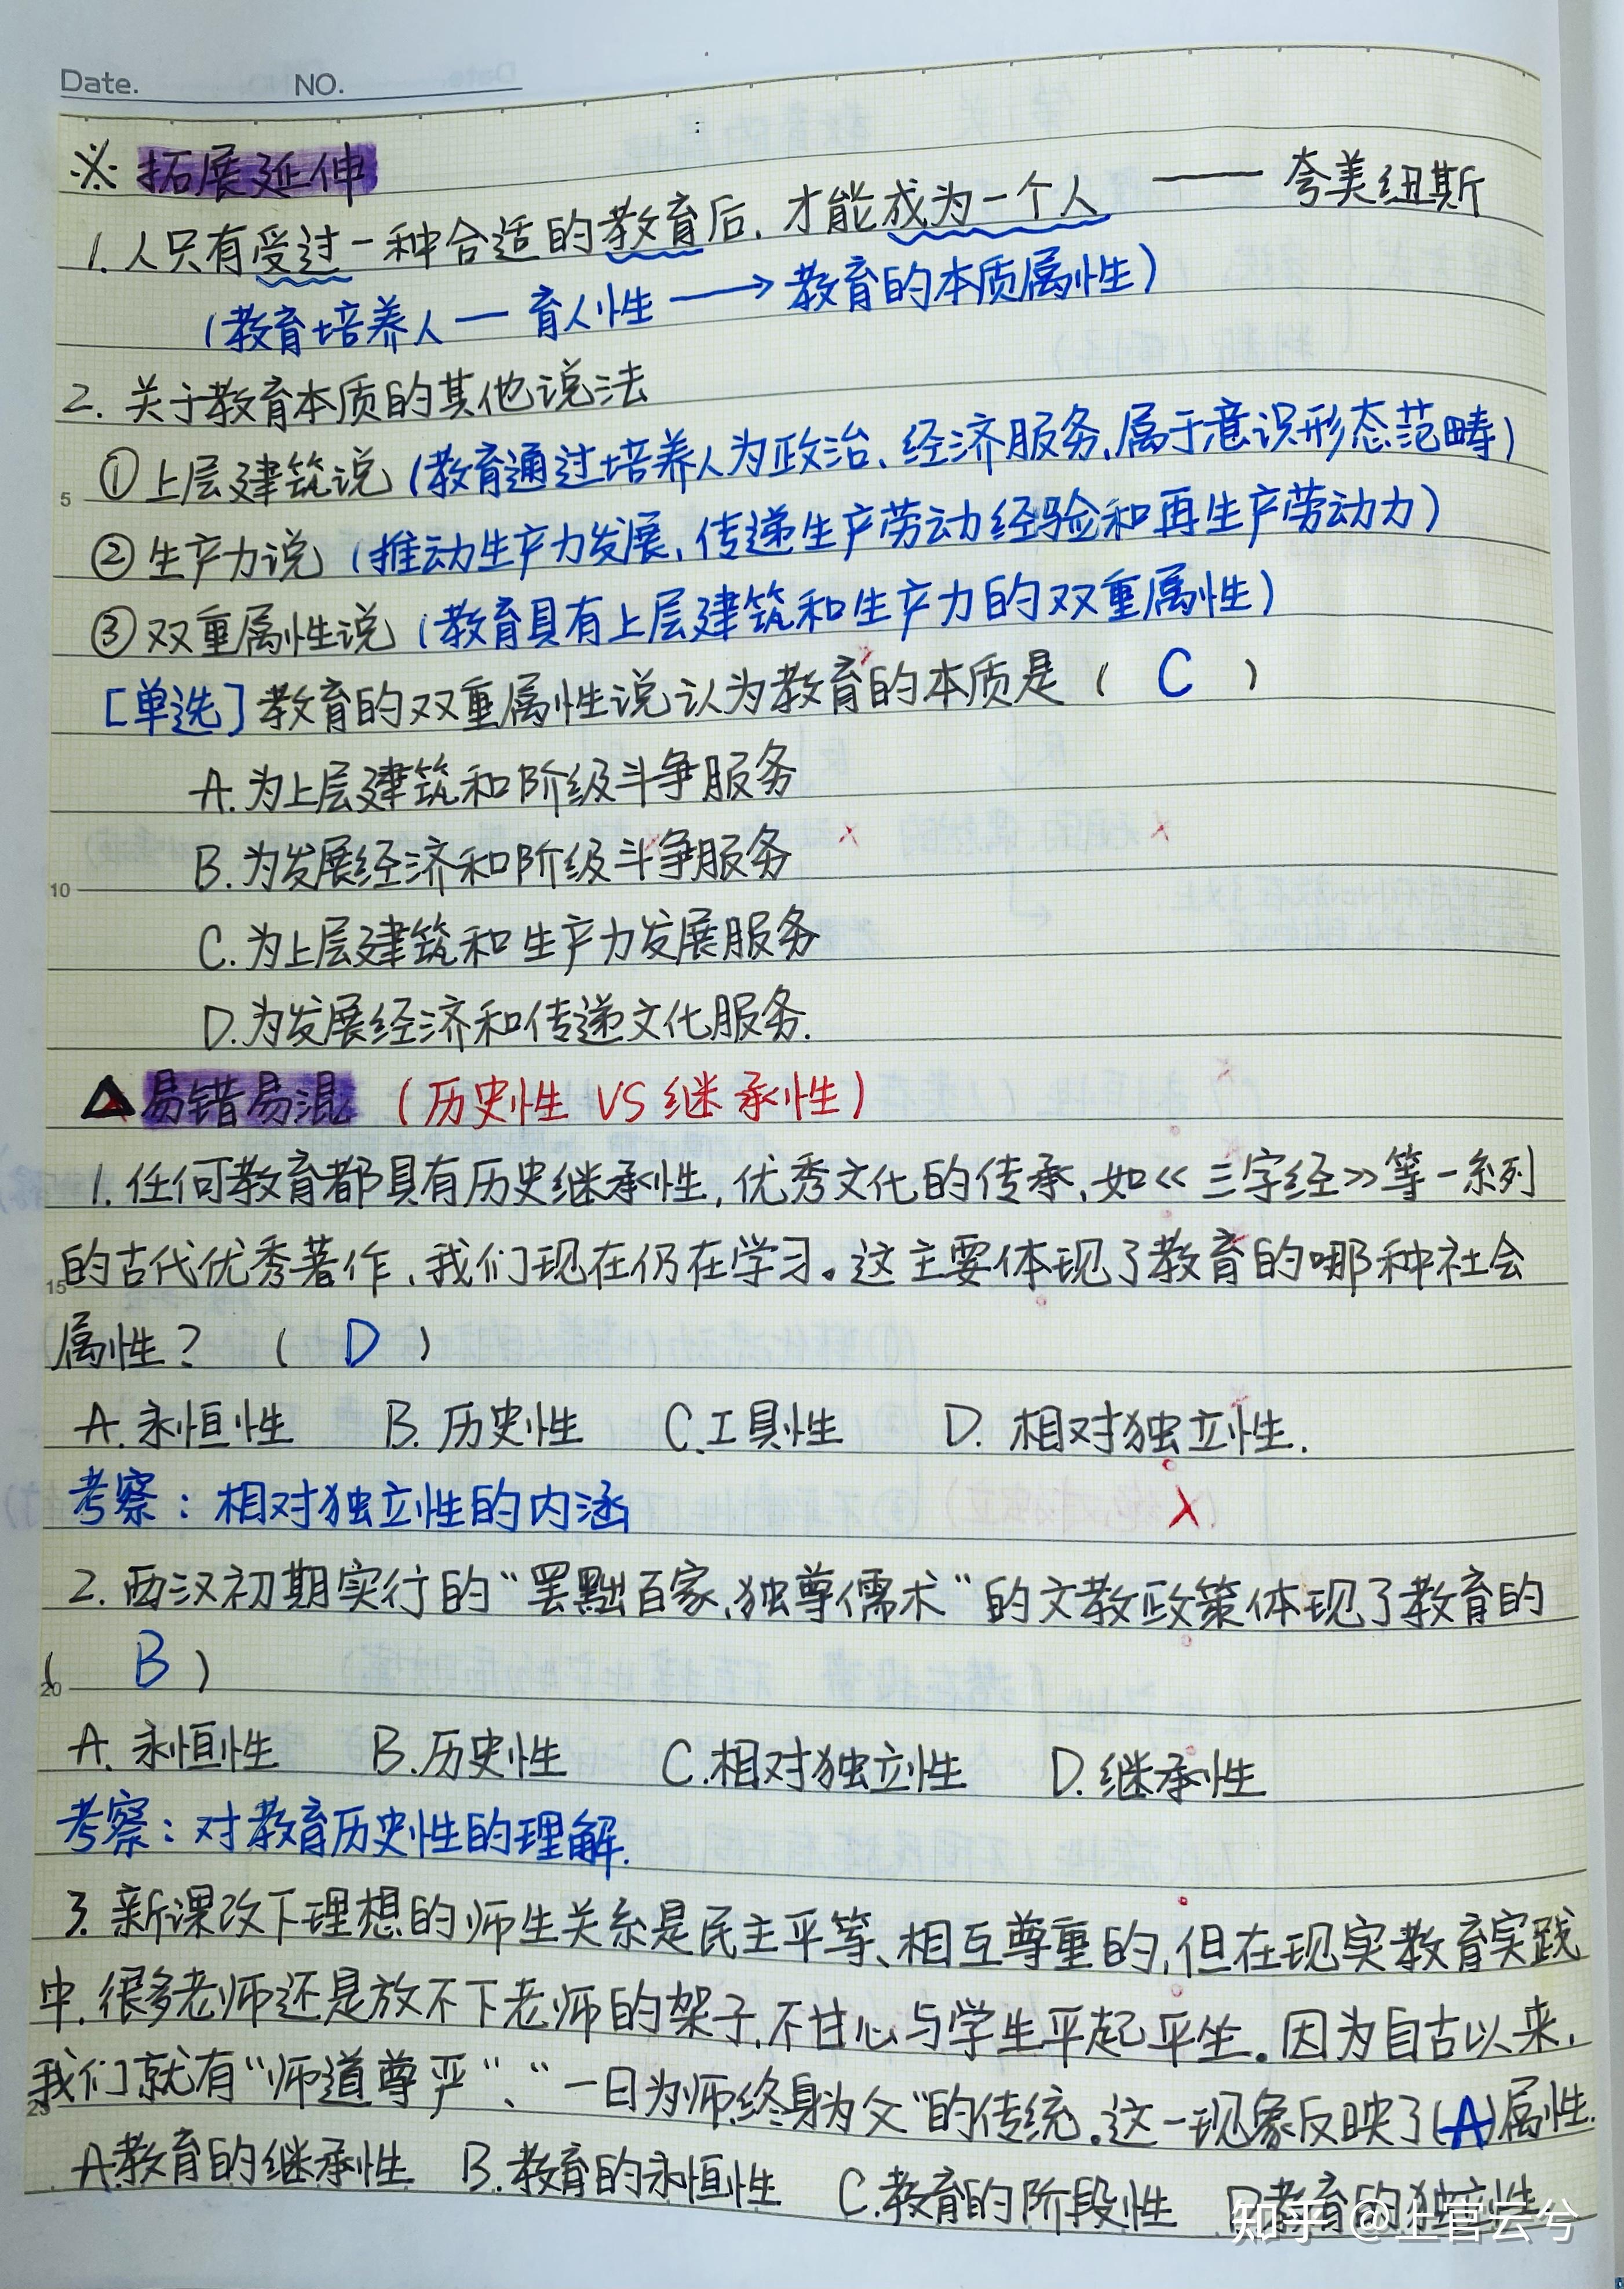 Date. NO.
※ 拓展延伸
1. 人只有受过一种合适的教育后，才能成为一个人 —— 夸美纽斯
（教育培养人 — 育人性 → 教育的本质属性）
2. 关于教育本质的其他说法
① 上层建筑说（教育通过培养人为政治、经济服务，属于意识形态范畴）
5
② 生产力说（推动生产力发展，传递生产劳动经验和再生产劳动力）
③ 双重属性说（教育具有上层建筑和生产力的双重属性）
[单选] 教育的双重属性说认为教育的本质是（ C ）
A. 为上层建筑和阶级斗争服务
B. 为发展经济和阶级斗争服务
10
C. 为上层建筑和生产力发展服务
D. 为发展经济和传递文化服务.
△ 易错易混 （历史性 VS 继承性）
1. 任何教育都具有历史继承性，优秀文化的传承，如《三字经》等一系列
的古代优秀著作，我们现在仍在学习。这主要体现了教育的哪种社会
15
属性？（ D ）
A. 永恒性 B. 历史性 C. 工具性 D. 相对独立性.
考察：相对独立性的内涵
2. 西汉初期实行的“罢黜百家，独尊儒术”的文教政策体现了教育的
（ B ）
20
A. 永恒性 B. 历史性 C. 相对独立性 D. 继承性
考察：对教育历史性的理解.
3. 新课改下理想的师生关系是民主平等、相互尊重的，但在现实教育实践
中，很多老师还是放不下老师的架子，不甘心与学生平起平坐。因为自古以来，
我们就有“师道尊严”、“一日为师终身为父”的传统。这一现象反映了(A)属性.
25
A. 教育的继承性 B. 教育的永恒性 C. 教育的阶段性 D. 教育的独立性
知乎 @上官云兮